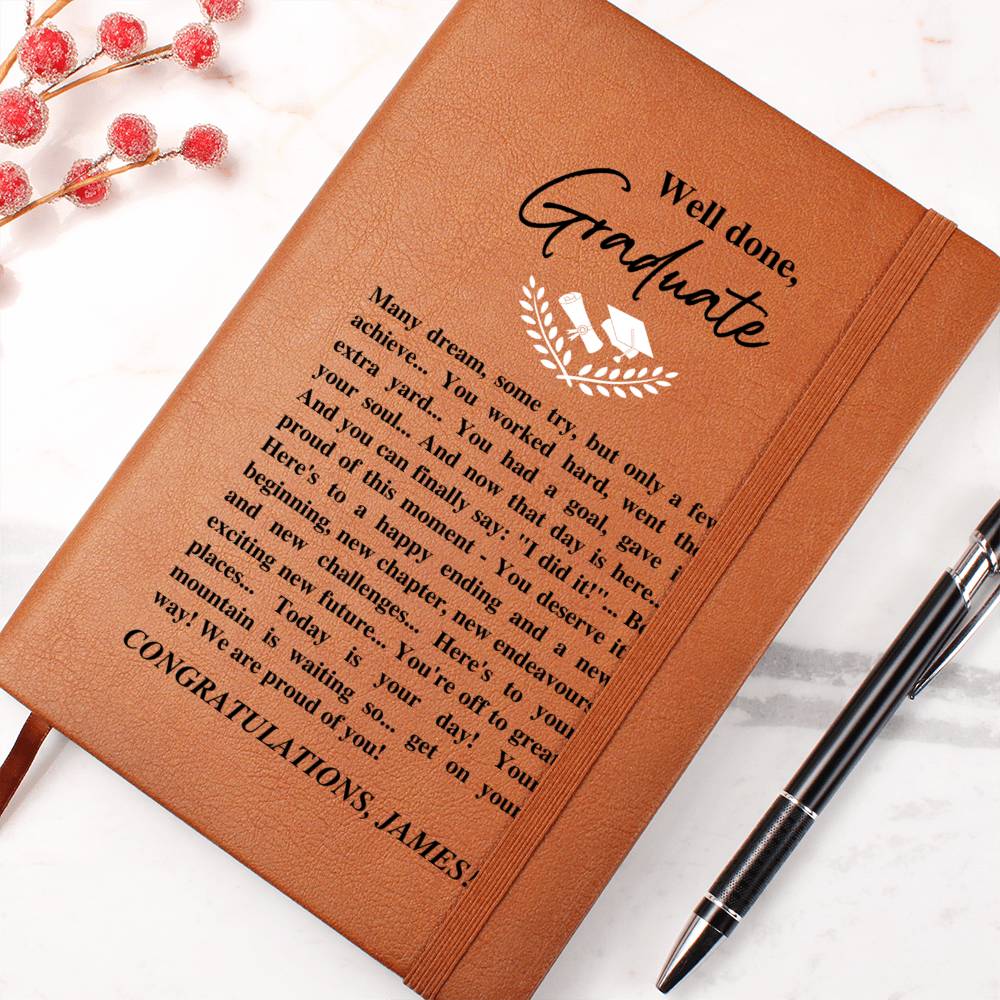 Well done,
Graduate
Many dream, some try, but only a few
achieve... You worked hard, went the
extra yard... You had a goal, gave i
your soul... And now that day is here..
And you can finally say: "I did it!"... Be
proud of this moment - You deserve it
Here's to a happy ending and a new
beginning, new chapter, new endeavours
and new challenges... Here's to your
exciting new future... You're off to great
places... Today is your day! Your
mountain is waiting so... get on your
way! We are proud of you!
CONGRATULATIONS, JAMES!